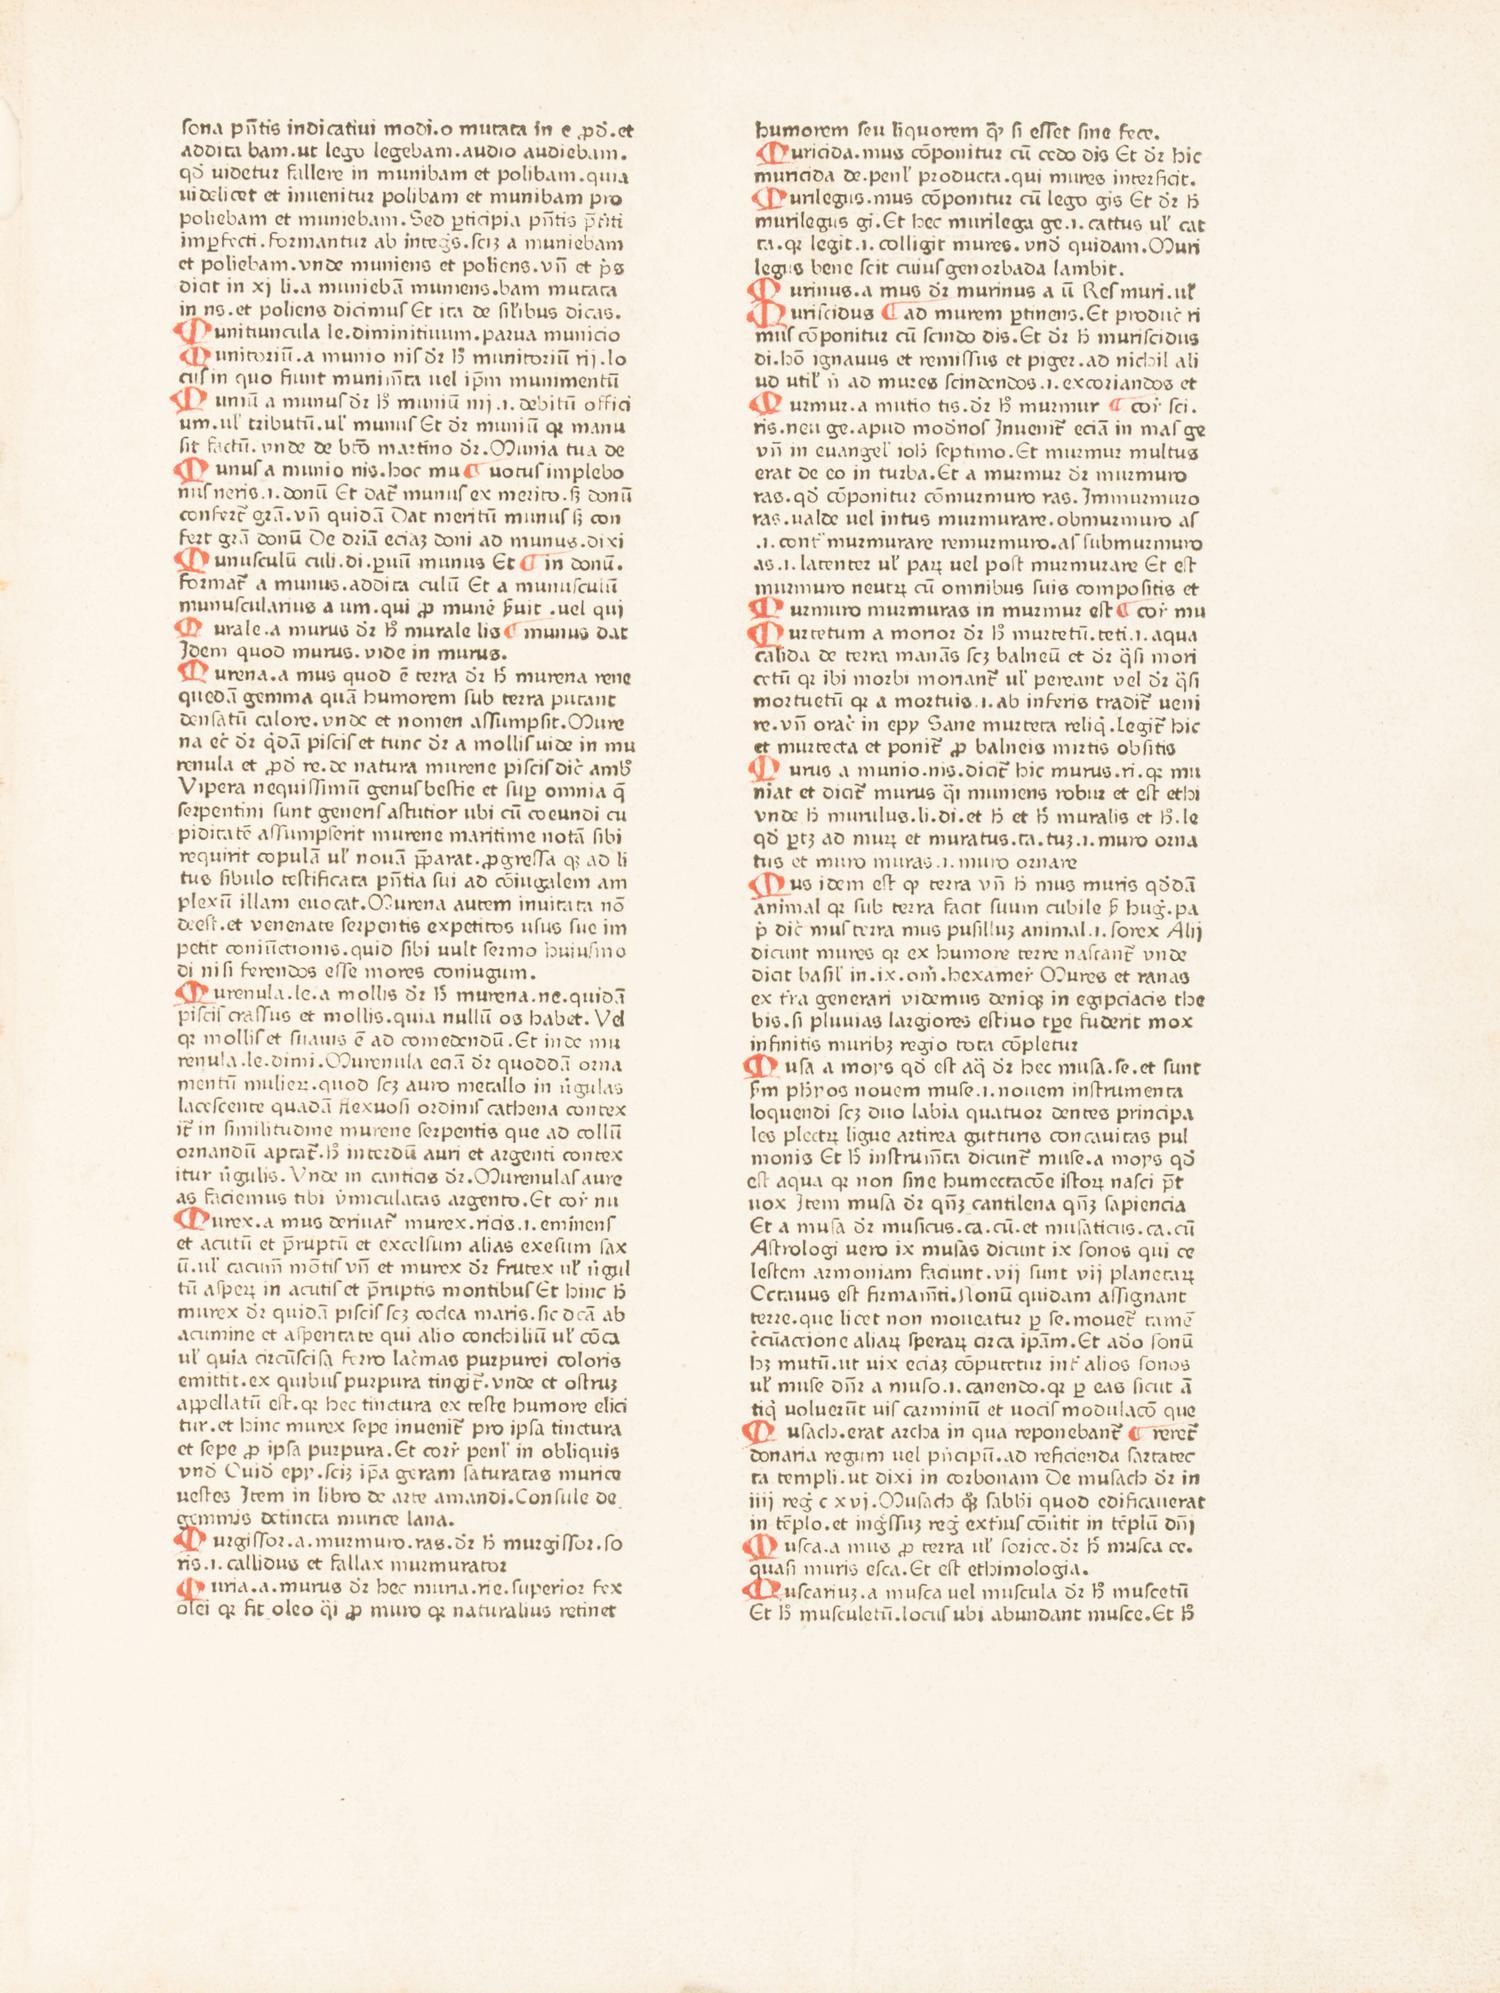 sona pn̄tis indicatiui modi.o mutata in e ꝓd̄.et
addita bam.ut lego legebam.audio audiebam.
qd̄ uidetur fallere in munibam et polibam.quia
uidelicet et inuenitur polibam et munibam pro
poliebam et muniebam.Sed ꝑticipia pn̄tis p̄t̄iti
imꝑfecti.formantur ab integ̓s.scꝫ a muniebam
et poliebam.vnde muniens et poliens.vn̄ et p̓s
dicit in xj li.a muniebā muniens.bam mutata
in ns.et poliens dicimus Et ita de sil̓ibus dicas.
Munituncula le.diminitiuum.parua municio
Munitoriū.a munio nis dr̄ h̓ munitoriū rij.lo
cus in quo fiunt munim̄ta uel ip̄m munimentū
Muniū a munus dr̄ h̓ muniū nij.i.debitū offici
um.ul̓ tributū.ul̓ munus Et dr̄ muniū qꝛ manu
sit factū.vnde de bt̄o martino dr̄.Munia tua de
Munus a munio nis.hoc mu ¶ uotus implebo
nus neris.i.donū Et dat̄ munus ex merito.sꝫ donū
confert̄ grā.vn̄ quidā Dat meritū munus sꝫ con
fert grā donū De dr̄iā eciaꝫ doni ad munus.dixi
Munusculū culi.di.puū munus Et ¶ in donū.
format̄ a munus.addita culū Et a munusculū
munuscularius a um.qui ꝓ mune̓ s̓uit .uel qui
Murale.a murus dr̄ h̓ murale lis ¶ munus dat
Idem quod murus.vide in murus.
Murena.a mus quod ē terra dr̄ h̓ murena rene
quedā gemma quā humorem sub terra putant
densatū calore.vnde et nomen assumpsit.Mure
na ec̓ dr̄ q̓dā piscis et tunc dr̄ a mollis uide in mu
renula et ꝓd̄ re.de natura murene piscis dic̓ amb̓
Vipera nequissimū genus bestie et suꝑ omnia q̄
serpentini sunt generis astutior ubi cū coeundi cu
piditatē assumpserit murene maritime notā sibi
requirit copulā ul̓ nouā p̄parat.ꝓgressa qꝫ ad li
tus sibulo testificata pn̄tia sui ad cōiugalem am
plexū illam euocat.Murena autem inuitata nō
deest.et venenate serpentis expetitos usus sue im
petit coniūctionis.quid sibi uult sermo huiusmo
di nisi ferendos esse mores coniugum.
Murenula.le.a mollis dr̄ h̓ murena.ne.quidā
piscis crassus et mollis.quia nullū os habet. Vel
qꝛ mollis et suauis ē ad comedendū.Et inde mu
renula.le.dimi.Murenula eciā dr̄ quoddā orna
mentū mulieꝝ.quod scꝫ auro metallo in u̓gulas
lacescente quadā flexuosi ordinis cathena contex
it̄ in similitudine murene serpentis que ad collū
ornandū aptat̄.h̓ interdū auri et argenti contex
itur u̓gulis. Vnde in canticis dr̄.Murenulas aure
as faciemus tibi v̓miculatas argento.Et cor̓ nu
Murex.a mus deriuat̄ murex.ricis.i.eminens
et acutū et p̄ruptū et excelsum alias exesum sax
ū.ul̓ cacum̄ mōtis vn̄ et murex dr̄ frutex ul̓ u̓gul
tū aspeꝝ in acutis et p̄ruptis montibus Et hinc h̓
murex dr̄ quidā piscis scꝫ coclea maris.sic dc̄ā ab
acumine et asperitate qui alio conchiliū ul̓ cōca
ul̓ quia circūscisa ferro lac̓mas purpurei coloris
emittit.ex quibus purpura tingit̄.vnde et ostruꝫ
appellatū est.qꝛ hec tinctura ex teste humore elici
tur.et hinc murex sepe inuenit̄ pro ipsa tinctura
et sepe ꝓ ipsa purpura.Et corr̓ penl̓ in obliquis
vnd̄ Ouid̄ epy.sciꝫ ip̄a geram saturatas murice
uestes Item in libro de arte amandi.Consule de
gemmis detincta murice lana.
Murgissor.a.murmuro.ras.dr̄ h̓ murgissor.so
ris.i.callidus et fallax murmurator
Muria.a.murus dr̄ hec muria.rie.superior fex
olei qꝛ fit oleo q̄i ꝓ muro qꝛ naturalius retinet
humorem seu liquorem qͣ̄ si esset sine fece.
Muricida.mus cōponitur cū cedo dis Et dr̄ hic
muricida de.penl̓ producta.qui mures interficit.
Murilegus.mus cōponitur cū lego gis Et dr̄ h̓
murilegus gi.Et hec murilega ge.i.cattus ul̓ cat
ta.qꝛ legit.i.colligit mures.vnd̄ quidam.Muri
legus bene scit cuius genorbada lambit.
Murinus.a mus dr̄ murinus a ū Res muri.ul̓
Muriscidus ¶ ad murem ꝑtinens.Et produc̓ ri
mus cōponitur cū scindo dis.Et dr̄ h̓ muriscidus
di.hō ignauus et remissus et piger.ad nichil ali
ud util̓ n̓ ad mures scindendos.i.excoriandos et
Murmur.a mutio tis.dr̄ h̓ murmur ¶ cor̓ sci.
ris.neu ge.apud mod̓nos Inuenit̄ eciā in mas ge
vn̄ in euangel̓ ioh̓ septimo.Et murmur multus
erat de eo in turba.Et a murmur dr̄ murmuro
ras.qd̄ cōponitur cōmurmuro ras.Immurmuro
ras.ualde uel intus murmurare.obmurmuro as
.i.cont̓ murmurare remurmuro.as submurmuro
as.i.latenter ul̓ paꝝ uel post murmurare Et est
murmuro neutꝝ cū omnibus suis compositis et
Murmuro murmuras in murmur est ¶ cor̓ mu
Murtetum a morior dr̄ h̓ murtetū.teti.i.aqua
calida de terra manās scꝫ balneū et dr̄ q̓si mori
cetū qꝛ ibi morbi moriant̄ ul̓ pereant vel dr̄ q̓si
mortuetū qꝛ a mortuis.i.ab inferis tradit̄ ueni
re.vn̄ orac̓ in epy Sane murteta reliq̓.Legit̄ hic
et murtecta et ponit̄ ꝓ balneis mirtis obsitis
Murus a munio.nis.dicit̄ hic murus.ri.qꝛ mu
niat et dicit̄ murus q̄i muniens robur et est ethi
vnde h̓ murulus.li.di.et h̓ et h̓ muralis et h̓.le
qd̄ ꝑtꝫ ad muꝝ et muratus.ta.tuꝫ.i.muro orna
tus et muro muras.i.muro ornare
Mus idem est qͣ terra vn̄ h̓ mus muris qd̄dā
animal qꝛ sub terra facit suum cubile s̓ hug̓.pa
p̓ dic̓ mus terra mus pusilluꝫ animal.i.sorex Alij
dicunt mures qꝛ ex humore terre nascant̄ vnde
dicit basil̓ in.ix.om̄.hexamer̓ Mures et ranas
ex t̓ra generari videmus deniqꝫ in egipciacis the
bis.si pluuias largiores estiuo tꝑe fuderit mox
infinitis muribꝫ regio tota cōpletur
Musa a moys qd̄ est aq̄ dr̄ hec musa.se.et sunt
s̓m ph̓ros nouem muse.i.nouem instrumenta
loquendi scꝫ duo labia quatuor dentes principa
les plectꝝ ligue artirea gutturis concauitas pul
monis Et h̓ instrum̄ta dicunt̄ muse.a moys qd̄
est aqua qꝛ non sine humectacōe istoꝝ nasci p̄t
uox Item musa dr̄ qn̄ꝫ cantilena qn̄ꝫ sapiencia
Et a musa dr̄ musicus.ca.cū.et musaticus.ca.cū
Astrologi uero ix musas dicunt ix sonos qui ce
lestem armoniam faciunt.vij sunt vij planetaꝝ
Octauus est firmam̄ti.Nonū quidam assignant
terre.que licet non moueatur ꝑ se.mouet̄ tamē
c̓cūaccione aliaꝝ speraꝝ circa ipām.Et ad̓o sonū
hꝫ mutū.ut uix eciaꝫ cōputetur int̓ alios sonos
ul̓ muse dn̄r a muso.i.canendo.qꝛ ꝑ eas sicut ā
tiq̓ uoluerūt uis carminū et uocis modulacō que
Musach.erat archa in qua reponebant̄ ¶ reret̄
donaria regum uel pn̓cipū.ad reficienda sartatec
ta templi.ut dixi in corbonam De musach dr̄ in
iiij reg̓ c xvj.Musach qͣꝫ sabb̓i quod edificauerat
in tēplo.et ing̓ssuꝫ reg̓ ext̓ius cōu̓tit in tēplū dn̄j
Musca.a mus ꝓ terra ul̓ sorice.dr̄ h̓ musca ce.
quasi muris esca.Et est ethimologia.
Muscariuꝫ.a musca uel muscula dr̄ h̓ muscetū
Et h̓ musculetū.locus ubi abundant musce.Et h̓